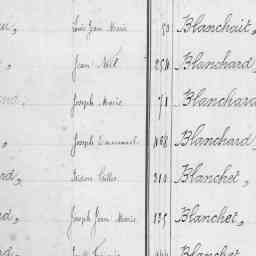 Louis Jean Marie 50 Blanchait,
" Jean Noël 254 Blanchard,
Joseph Marie 71 Blanchard
" Joseph Emmanuel 408 Blanchard,
314 Blanchet,
Joseph Jean Marie 135 Blanchet,
Blanchet